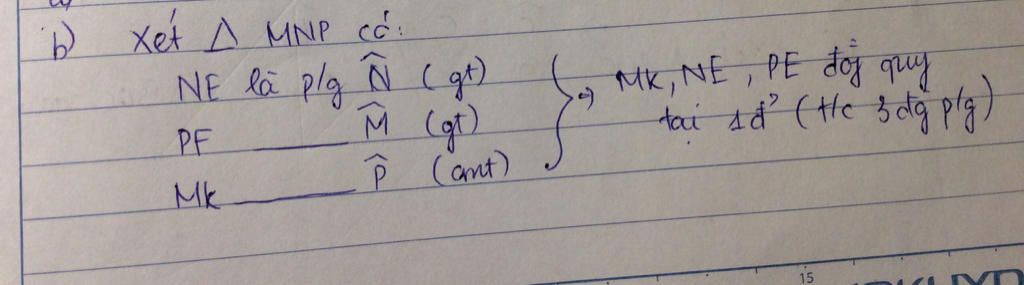 b) Xét Δ MNP có:
NE là p/g N̂ (gt)
PF ____ M̂ (gt)
Mk ____ P̂ (cmt)
} => Mk, NE, PE đồg quy
tại 1đ' (t/c 3 đg p/g)
15